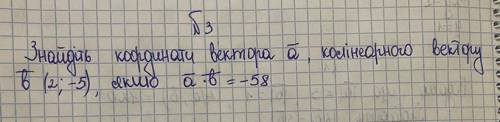 №3
Знайдіть координати вектора a̅, колінеарного вектору
b̅ (2; -5), якщо a̅ · b̅ = -58